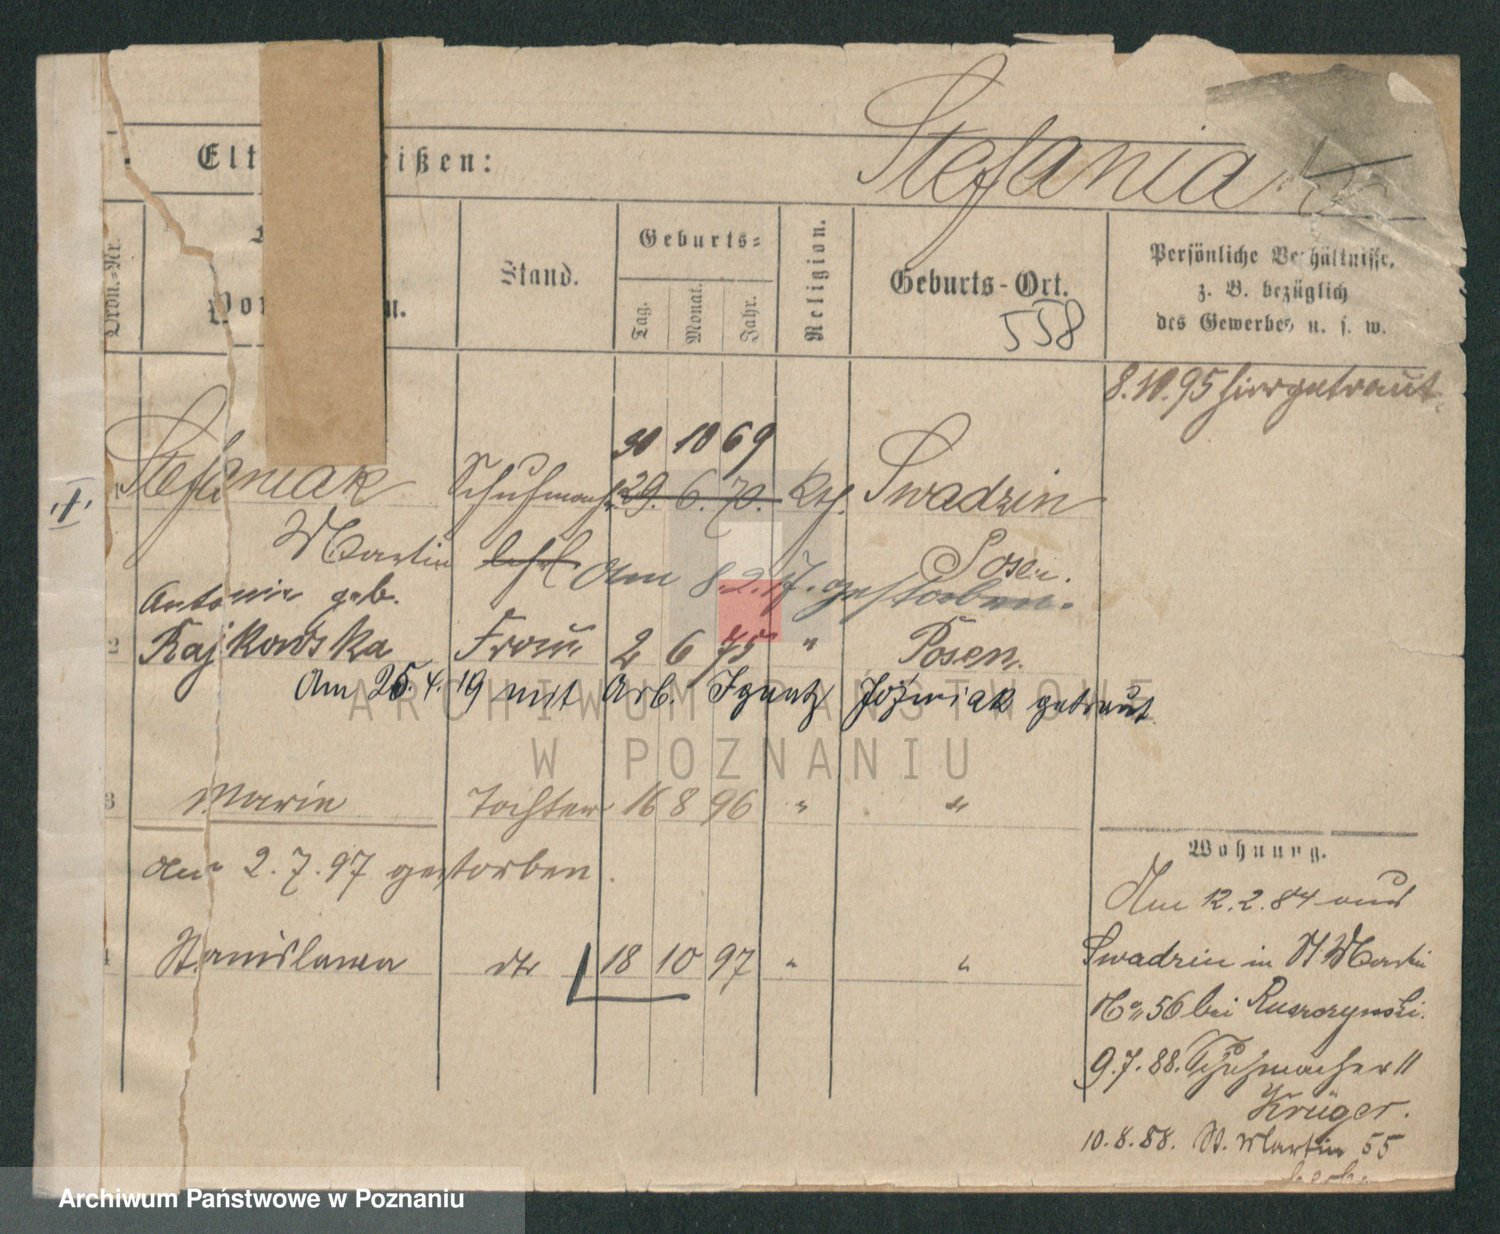 Stefaniak
Elt eißen:
Ordn.-Nr.
Vor n.
Stand.
Geburts=
Tag.
Monat.
Jahr.
Religion.
Geburts-Ort.
558
Persönliche Verhältnisse,
z. B. bezüglich
des Gewerbes u. s. w.
8.10.95 hier getraut.
30 10 69
1 Stefaniak Schuhmach. 29. 6. 70. Kth. Swadzin
Martin Posen.
Am 8.2.17. gestorben.
Antonie geb.
2 Rajkowska Frau 2 6 75 " Posen.
Am 25.4.19 mit Arb. Ignatz Jóźwiak getraut
ARCHIWUM PAŃSTWOWE
W POZNANIU
3 Marie Tochter 16 8 96 " "
am 2.7.97 gestorben.
4 Stanislawa dto 18 10 97 " "
Wohnung.
Am 12.2.84 aus
Swadzin in St Martin
No 56 bei Ruszczynski.
9.7.88. Schuhmacher
Krüger.
10.8.88. St. Martin 55
Archiwum Państwowe w Poznaniu